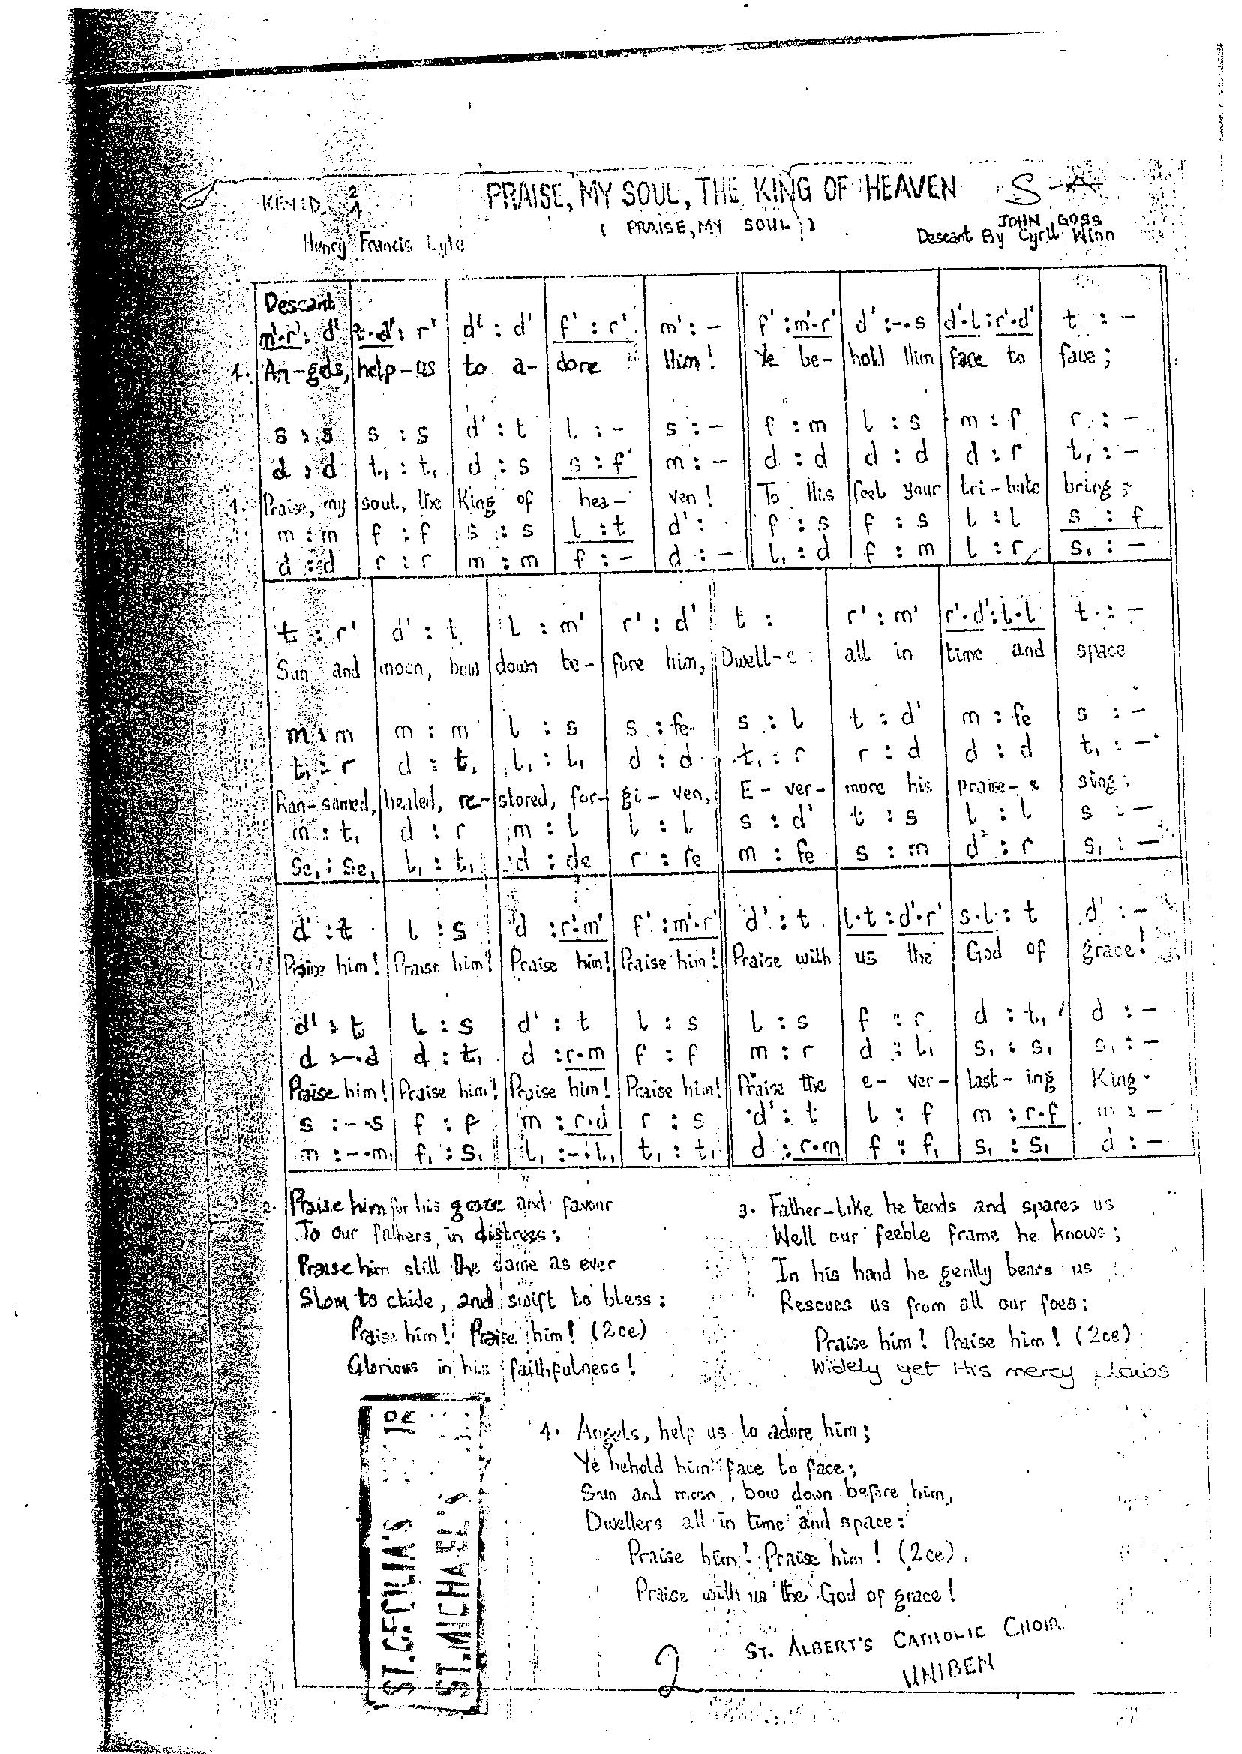 PRAISE, MY SOUL, THE KING OF HEAVEN
KEY: D
( PRAISE, MY SOUL )
JOHN GOSS
Henry Francis Lyte
Descant By Cyril Winn
Descant
m'.r' : d' | t.d' : r' | d' : d' | f' : r' | m' : - | f' : m'.r' | d' : -.s | d'.l : r'.d' | t : -
4. An-gels, help-us to a-dore Him! Ye be-hold Him face to face;
s : s | s : s | d' : t | l : - | s : - | f : m | l : s | m : f | r : -
d : d | t, : t, | d : s | s : f | m : - | d : d | d : d | d : r | t, : -
1. Praise, my soul, the King of hea-ven! To His feet your tri-bute bring;
m : m | f : f | s : s | l : t | d' : | f : s | f : s | l : l | s : f
d : d | r : r | m : m | f : - | d : - | l, : d | f : m | l : r | s, : -
t : r' | d' : t | l : m' | r' : d' | t : | r' : m' | r'.d' : l.l | t : -
Sun and moon, bow down be-fore him, Dwell-e all in time and space
m : m | m : m | l : s | s : fe | s : l | t : d' | m : fe | s : -
t, : r | d : t, | l, : l, | d : d | t, : r | r : d | d : d | t, : -
Ran-somed, healed, re-stored, for-gi-ven, E-ver-more his praise-s sing:
m : t, | d : r | m : l | l : l | s : d' | t : s | l : l | s : -
se, : se, | l, : t, | d : de | r : fe | m : fe | s : m | d' : r | s, : -
d' : t | l : s | d : r'.m' | f' : m'.r' | d' : t | l.t : d'.r' | s.l : t | d' : -
Praise him! Praise him! Praise him! Praise him! Praise with us the God of grace!
d' : t | l : s | d' : t | l : s | l : s | f : r | d : t, | d : -
d : -.d | d : t, | d : r.m | f : f | m : r | d : l, | s, : s, | s, : -
Praise him! Praise him! Praise him! Praise him! Praise the e-ver-last-ing King.
s : -.s | f : f | m : r.d | r : s | d' : t | l : f | m : r.f | m : -
m : -.m | f, : s, | l, : -.l, | t, : t, | d : r.m | f : f, | s, : s, | d : -
2. Praise him for his grace and favour
To our fathers, in distress;
Praise him still the same as ever
Slow to chide, and swift to bless:
Praise him! Praise him! (2ce)
Glorious in his faithfulness!
3. Father-like he tends and spares us
Well our feeble frame he knows;
In his hand he gently bears us
Rescues us from all our foes:
Praise him! Praise him! (2ce)
Widely yet His mercy
4. Angels, help us to adore him;
Ye behold him face to face;
Sun and moon, bow down before him,
Dwellers all in time and space:
Praise him! Praise him! (2ce).
Praise with us the God of grace!
ST. CECILIA'S
ST. MICHAEL'S
2
ST. ALBERT'S CATHOLIC CHOIR
UNIBEN